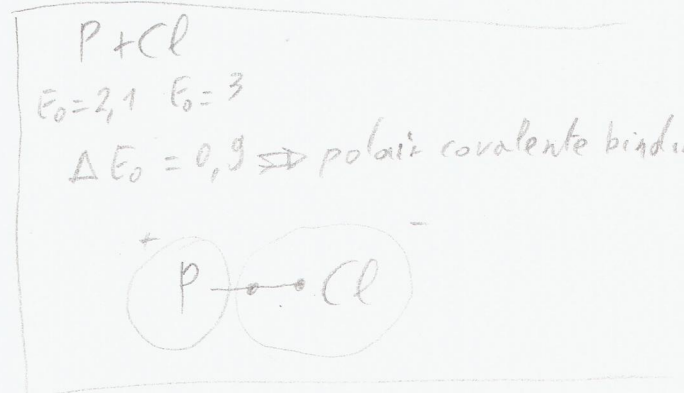 P + Cl
E₀ = 2,1 E₀ = 3
Δ E₀ = 0,9 ⇒ polair covalente
+ -
P Cl